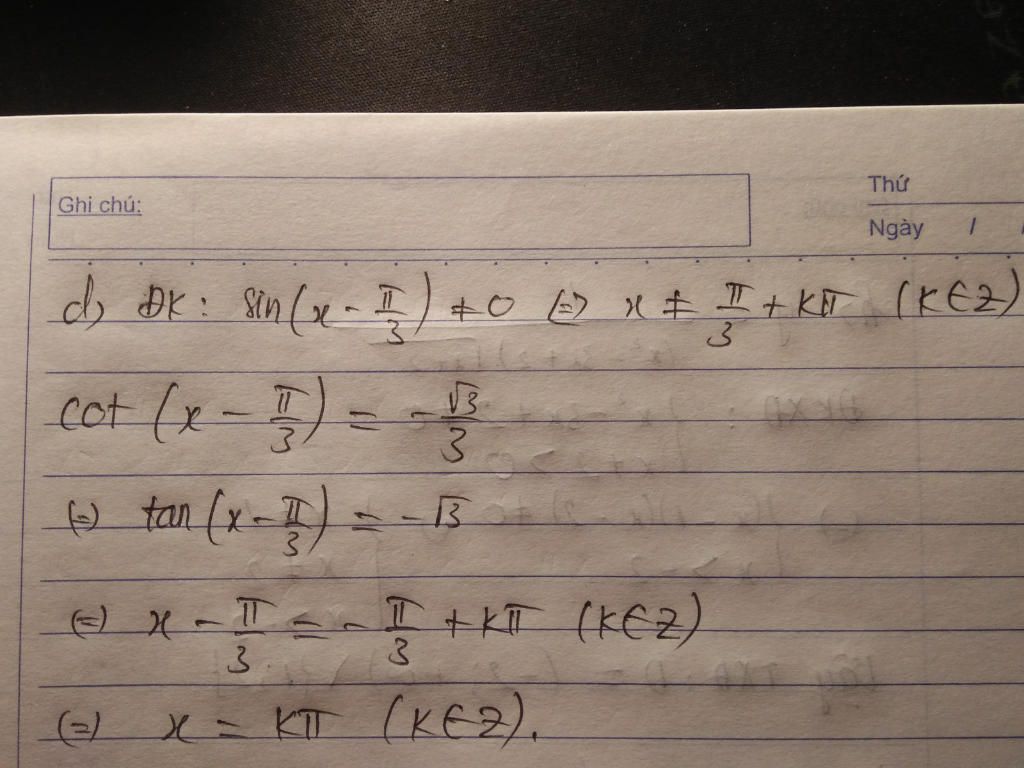 Ghi chú:
Thứ
Ngày / /
d) ĐK: sin(x - π/3) ≠ 0 (=) x ≠ π/3 + kπ (k ∈ Z)
cot (x - π/3) = - √3/3
(=) tan (x - π/3) = - √3
(=) x - π/3 = - π/3 + kπ (k ∈ Z)
(=) x = kπ (k ∈ Z).